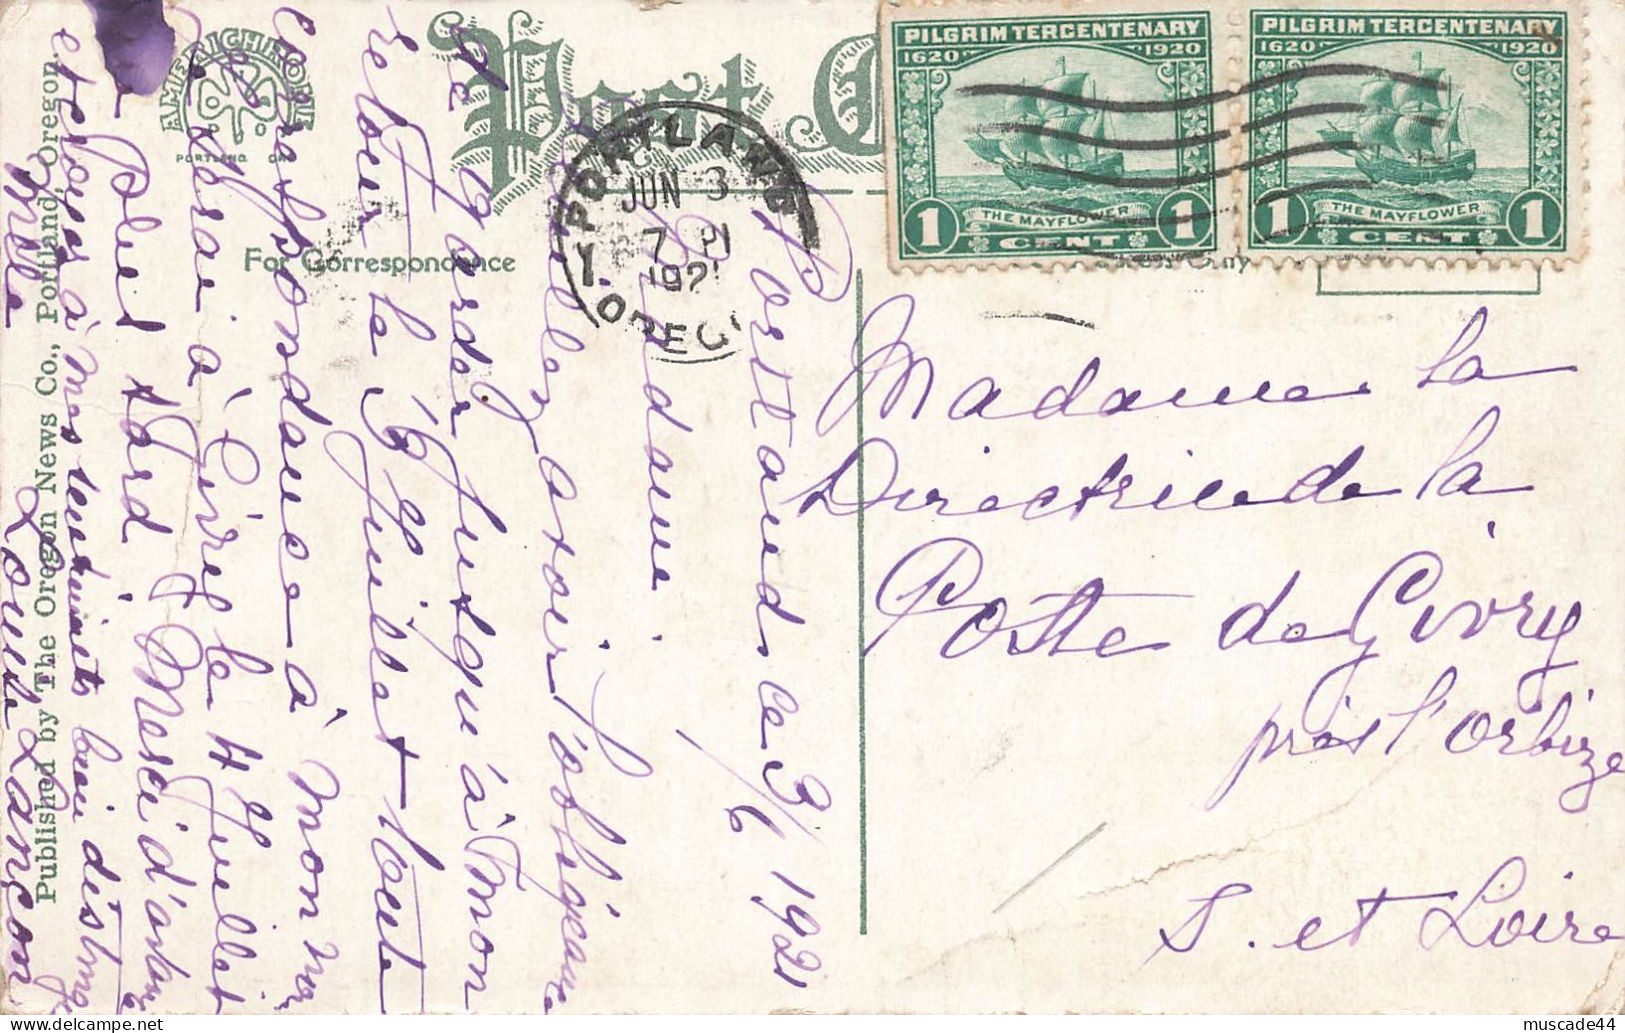 Post C
AMERICHROME
PORTLAND, ORE.
For Correspondence
PILGRIM TERCENTENARY
1620 1920
THE MAYFLOWER
1 CENT 1
PILGRIM TERCENTENARY
1620 1920
THE MAYFLOWER
1 CENT 1
PORTLAND
JUN 3
7 PM
1921
OREG
Portland ce 3/6 1921
Madame
Veuillez avoir l'obligeance
de garder jusqu'à mon
retour le 4 Juillet toute
correspondance à mon nom
Je serai à Givry le 4 Juillet
plus tard Merci d'avance
et croyez à mes sentiments bien distingués
Mlle Louise Lançon
Madame la
Directrice de la
Poste de Givry
près l'Orbize
S. et Loire
Published by The Oregon News Co., Portland, Oregon.
muscade44